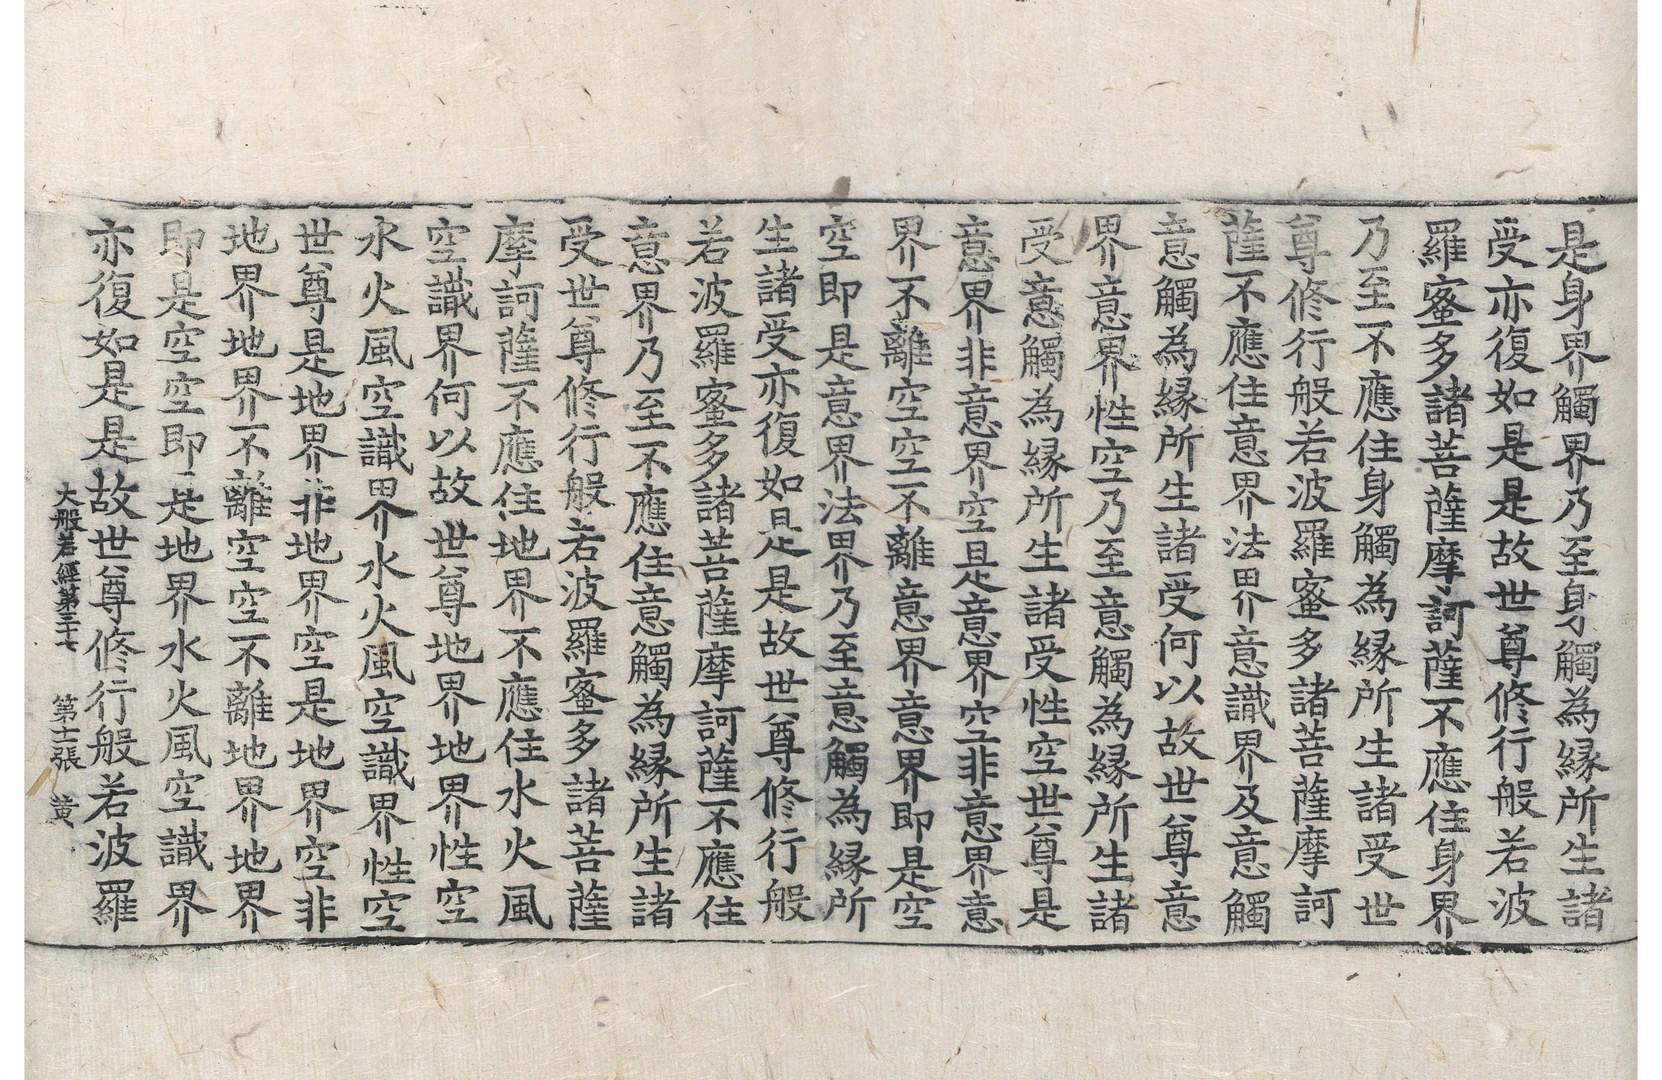 是身界觸界乃至身觸為縁所生諸
受亦復如是是故世尊修行般若波
羅蜜多諸菩薩摩訶薩不應住身界
乃至不應住身觸為縁所生諸受世
尊修行般若波羅蜜多諸菩薩摩訶
薩不應住意界法界意識界及意觸
意觸為縁所生諸受何以故世尊意
界意界性空乃至意觸為縁所生諸
受意觸為縁所生諸受性空世尊是
意界非意界空是意界空非意界意
界不離空空不離意界意界即是空
空即是意界法界乃至意觸為縁所
生諸受亦復如是是故世尊修行般
若波羅蜜多諸菩薩摩訶薩不應住
意界乃至不應住意觸為縁所生諸
受世尊修行般若波羅蜜多諸菩薩
摩訶薩不應住地界不應住水火風
空識界何以故世尊地界地界性空
水火風空識界水火風空識界性空
世尊是地界非地界空是地界空非
地界地界不離空空不離地界地界
即是空空即是地界水火風空識界
亦復如是是故世尊修行般若波羅
大般若經第三十七 第十二張 黄